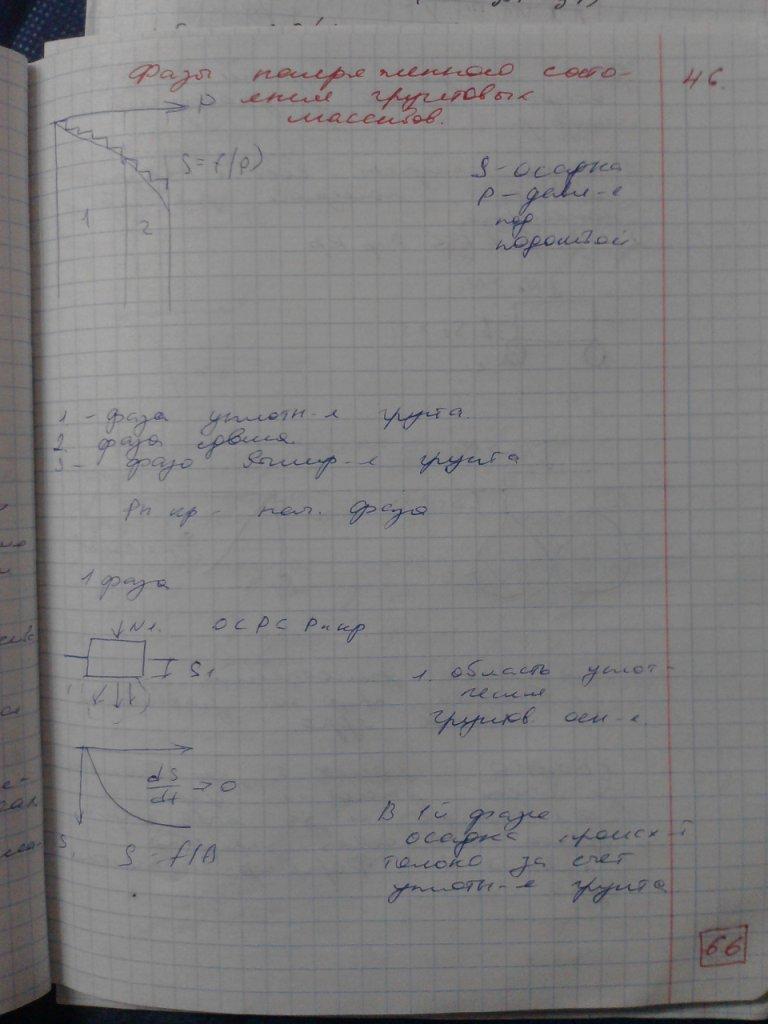 Фазы напряженного состо-
46.
P
яния грунтовых
массивов.
S=f(p)
S - осадка
P - давл-е
под
подошвой
1
2
1 - фаза уплотн-я грунта.
2. фаза сдвига.
3 - фаза выпир-я грунта
Pн кр - нач. фаза
1 фаза
N1.
O < P < Pн кр
S1
1. область уплот-
нения
грунтов. осн-я.
dS/dt → 0
В 1й фазе
осадка происх-т
S.
S = f(t)
только за счет
уплотн-я грунта
66